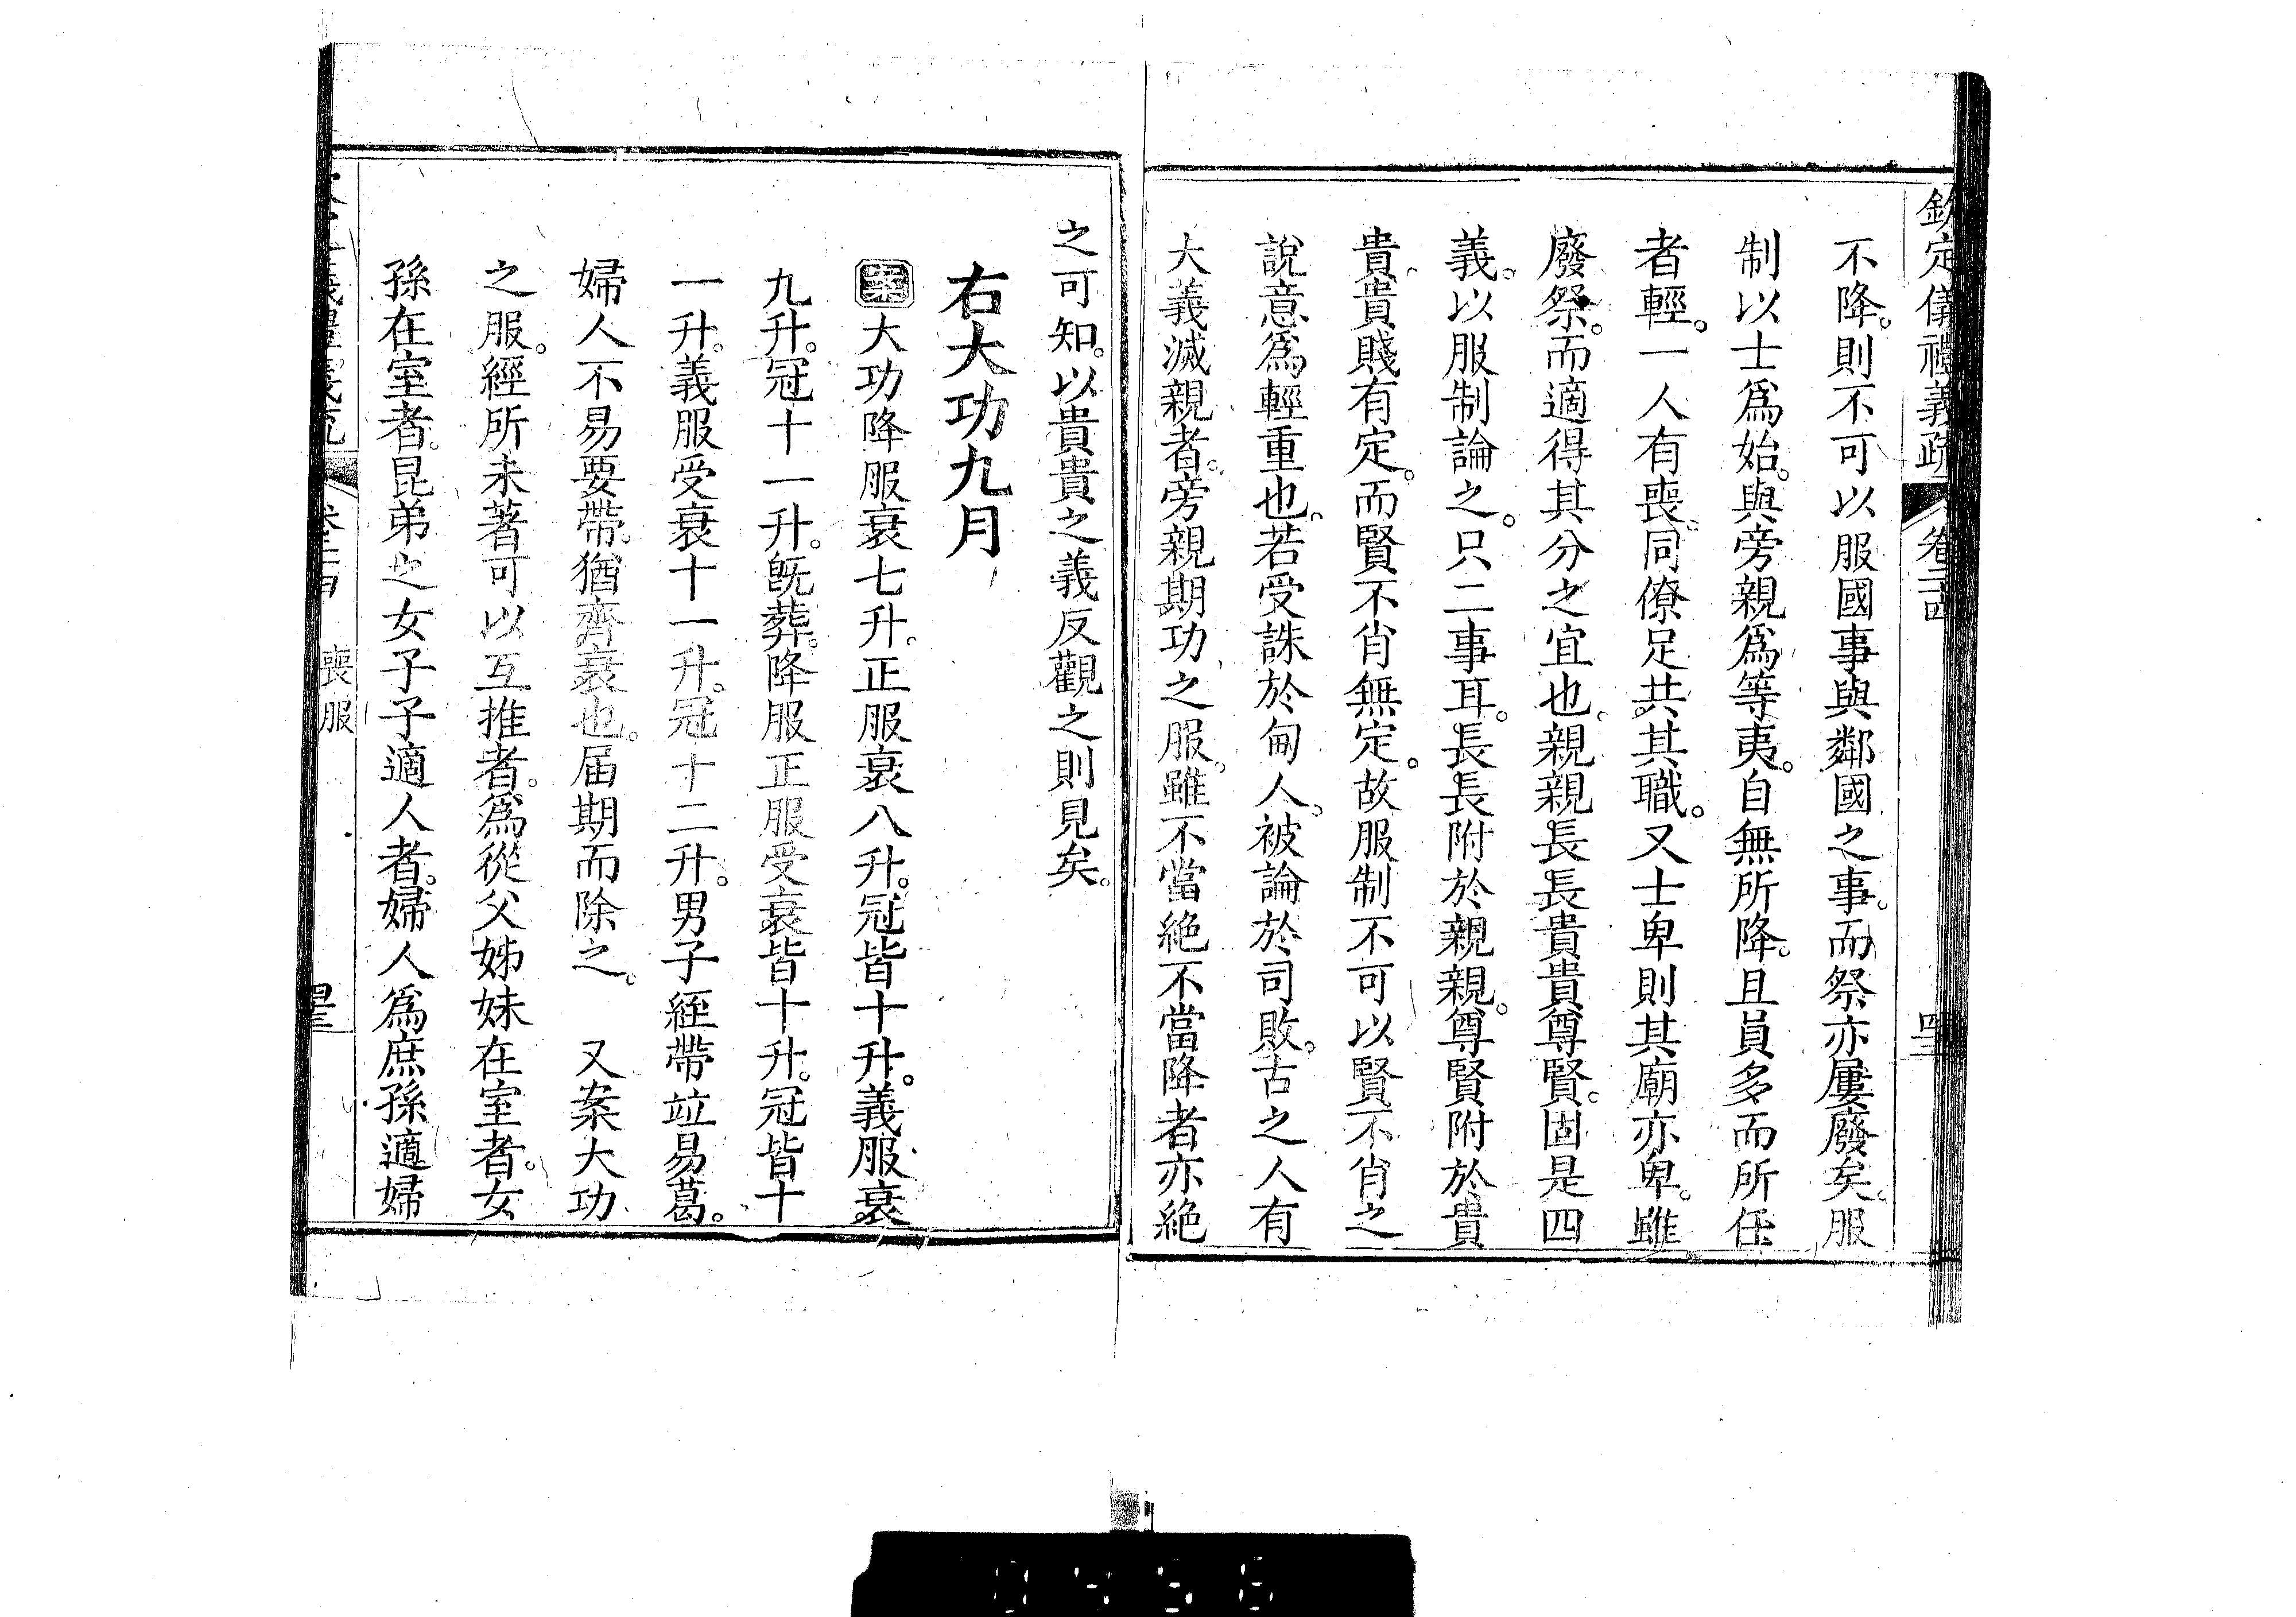 欽定儀禮義疏　卷二十四
不降。則不可以服國事與鄰國之事。而祭亦屢廢矣。服
制以士爲始。與旁親爲等夷。自無所降。且員多而所任
者輕。一人有喪。同僚足共其職。又士卑則其廟亦卑。雖
廢祭。而適得其分之宜也。親親長長貴貴尊賢。固是四
義。以服制論之。只二事耳。長長附於親親。尊賢附於貴
貴。貴賤有定。而賢不肖無定。故服制不可以賢不肖之
說意爲輕重也。若受誅於甸人。被論於司敗。古之人有
大義滅親者。旁親期功之服。雖不當絶不當降者亦絶
之可知。以貴貴之義反觀之則見矣。
右大功九月
案大功降服衰七升。正服衰八升。冠皆十升。義服衰
九升。冠十一升。旣葬。降服正服受衰皆十升。冠皆十
一升。義服受衰十一升。冠十二升。男子絰帶竝易葛。
婦人不易要帶。猶齊衰也。屆期而除之。　又案大功
之服。經所未著可以互推者。爲從父姊妹在室者。女
孫在室者。昆弟之女子子適人者。婦人爲庶孫適婦
喪服